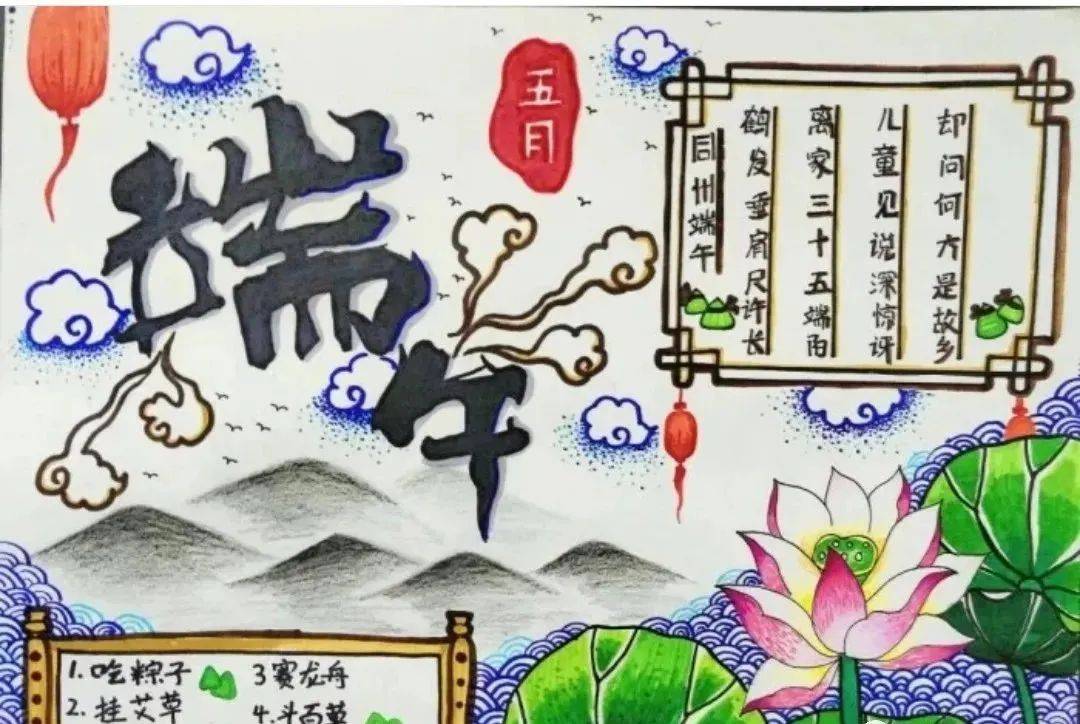 端午
五月
同州端午
鹤发垂肩尺许长
离家三十五端阳
儿童见说深惊讶
却问何方是故乡
1.吃粽子
2.挂艾草
3赛龙舟
4.斗百草